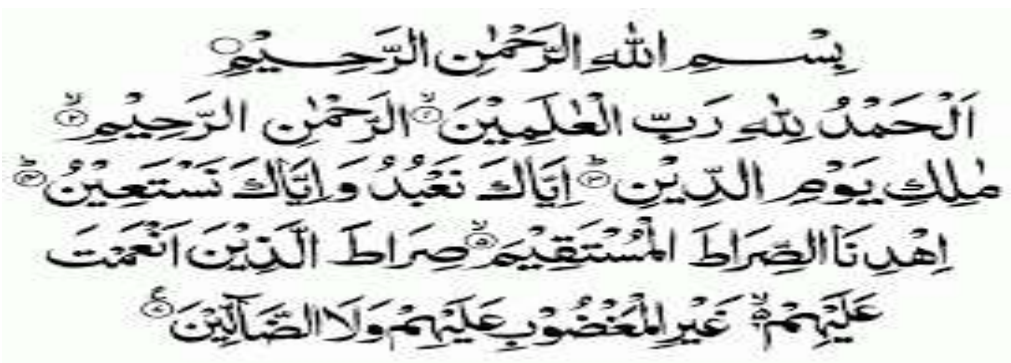 بِسْــمِ اللهِ الرَّحْمٰنِ الرَّحِــيْمِ ○
اَلْحَمْدُ لِلّٰهِ رَبِّ الْعٰلَمِيْنَ ۙ الرَّحْمٰنِ الرَّحِيْمِ ۙ
مٰلِكِ يَوْمِ الدِّيْنِ ؕ اِيَّاكَ نَعْبُدُ وَاِيَّاكَ نَسْتَعِيْنُ ؕ
اِهْدِنَا الصِّرَاطَ الْمُسْتَقِيْمَ ۙ صِرَاطَ الَّذِيْنَ اَنْعَمْتَ
عَلَيْهِمْ ۙ غَيْرِ الْمَغْضُوْبِ عَلَيْهِمْ وَلَا الضَّآلِّيْنَ